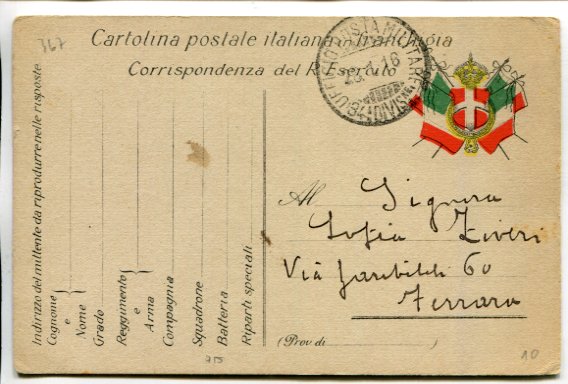 367
Cartolina postale italiana in franchigia
Corrispondenza del R. Esercito
UFFICIO POSTA MILITARE
1.16
DIVISIONE
Indirizzo del mittente da riprodurre nelle risposte
Cognome
e
Nome
Grado
Reggimento
e
Arma
Compagnia
Squadrone
Batteria
Riparti speciali
Al Signora
Sofia Ziveri
Via Garibaldi 60
Ferrara
(Prov di )
10